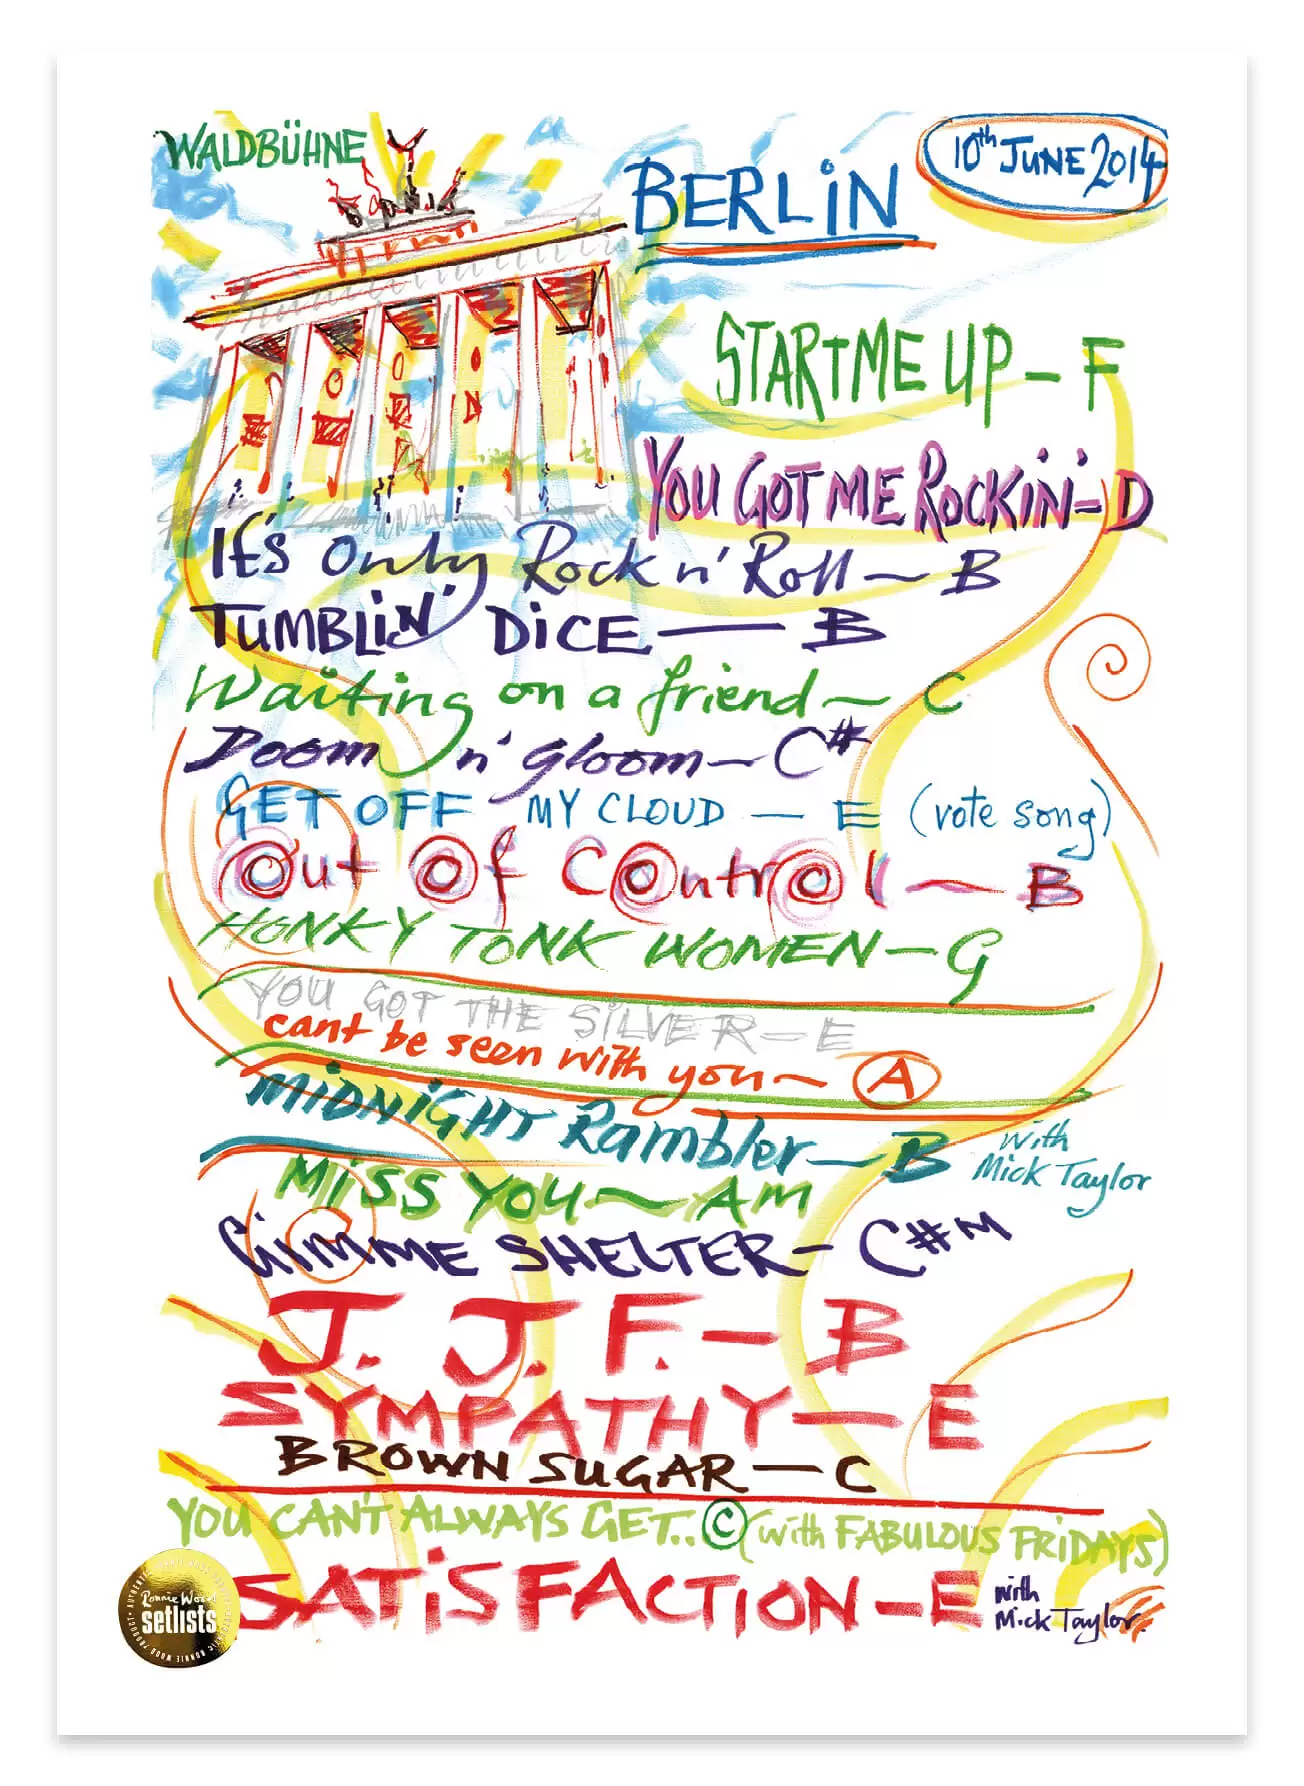 WALDBÜHNE
BERLIN
10th JUNE 2014
START ME UP - F
YOU GOT ME ROCKIN' - D
It's only Rock n' Roll ~ B
TUMBLIN' DICE — B
Waiting on a friend ~ C
Doom n' gloom - C#
GET OFF MY CLOUD — E (vote song)
Out Of Control ~ B
HONKY TONK WOMEN - G
YOU GOT THE SILVER - E
cant be seen with you ~ A
MIDNIGHT Rambler ~ B with
Mick Taylor
MISS YOU ~ AM
GIMME SHELTER - C#M
J. J. F. - B
SYMPATHY — E
BROWN SUGAR — C
YOU CAN'T ALWAYS GET.. C (with FABULOUS FRIDAYS)
SATISFACTION - E with
Mick Taylor.
Ronnie Wood
setlists